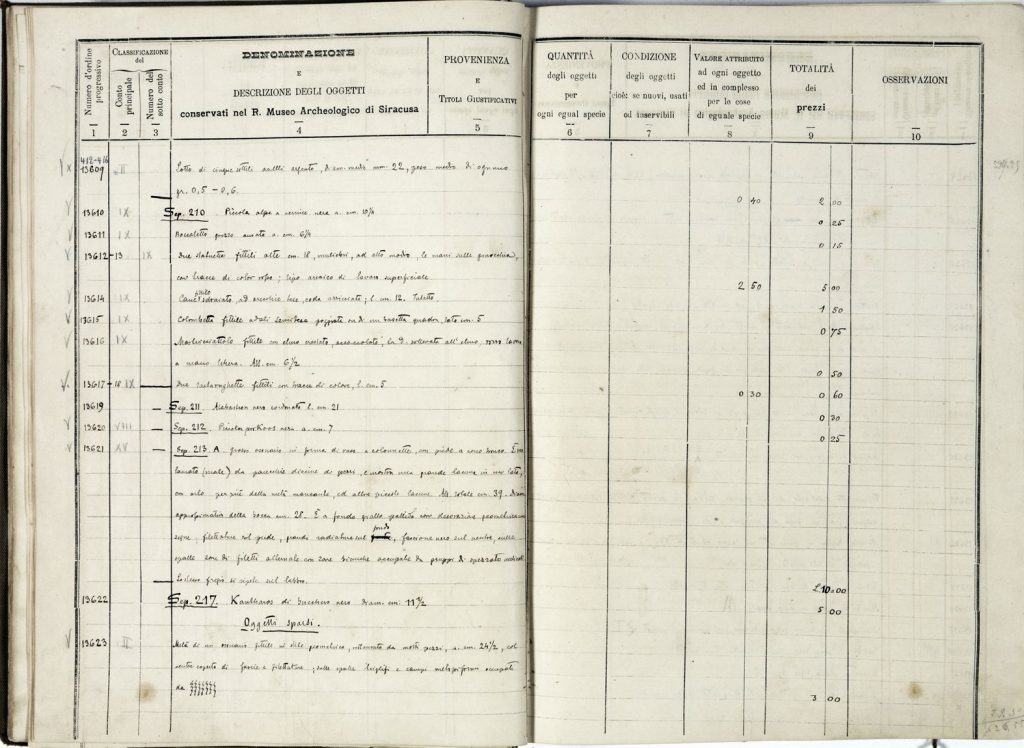 Numero d'ordine progressivo
CLASSIFICAZIONE del
Conto principale
Numero del sotto conto
DENOMINAZIONE
E
DESCRIZIONE DEGLI OGGETTI
conservati nel R. Museo Archeologico di Siracusa
PROVENIENZA
E
TITOLI GIUSTIFICATIVI
QUANTITÀ
degli oggetti
per
ogni egual specie
CONDIZIONE
degli oggetti
cioè: se nuovi, usati
od inservibili
VALORE ATTRIBUITO
ad ogni oggetto
ed in complesso
per le cose
di eguale specie
TOTALITÀ
dei
prezzi
OSSERVAZIONI
1 2 3 4 5 6 7 8 9 10
412-416
13609 II Lotto di cinque sottili anelli argento, diam. medio mm. 22, peso medio di ognuno
gr. 0,5 - 0,6. 0 40 2 00
13610 IX Sep. 210 Piccola a vernice nera a. cm. 10 1/2 0 25
13611 IX Boccaletto grezzo a. cm. 6 1/2 0 15
13612-13 IX Due statuette fittili alte cm. 18, muliebri, ad alto modio, le mani sulle ginocchia,
con tracce di color roseo; tipo arcaico di lavoro superficiale 2 50 5 00
13614 IX sdraiato, ad orecchie tese, coda arricciata; l. cm. 12. 1 50
13615 IX Colombetta fittile ad ali poggiata su di un basetta quadra, lato cm. 5 0 75
13616 IX fittile con elmo crestato, accoccolato, la d. sollevata all'elmo, lavoro
a mano libera. Alt. cm. 6 1/2 0 50
13617-18 IX Due tartarughette fittili con tracce di colore, l. cm. 5 0 30 0 60
13619 Sep. 211 Alabastron nero l. cm. 21 0 30
13620 VIII Sep. 212 Piccolo nero a. cm. 7 0 25
13621 XV Sep. 213 A grosso ossuario in forma di vaso a colonnette, con piede a cono tronco. È
(male) da parecchie diecine di pezzi, e mostra una grande lacuna in un lato,
con orlo per più della metà mancante, ed altre piccole lacune. Alt. totale cm. 39. Diam.
approssimativo della bocca cm. 28. È a fondo giallo pallido con decorazione geometrica
filettature sul piede, grandi radiature sul fondo, fascione nero sul ventre, sulle
spalle zone di filetti alternate con zone occupate da gruppi di spezzato
Lo stesso fregio si ripete sul labbro. £ 10 00
13622 Sep. 217. Kantharos di bucchero nero diam. cm. 11 1/2 5 00
Oggetti sparsi.
13623 II Metà di un ossuario fittile di stile geometrico, restaurato da molti pezzi, a. cm. 24 1/2, col
ventre coperto di fascie e filettature; sulle spalle triglifi e campi metopiformi occupati
da 3 00